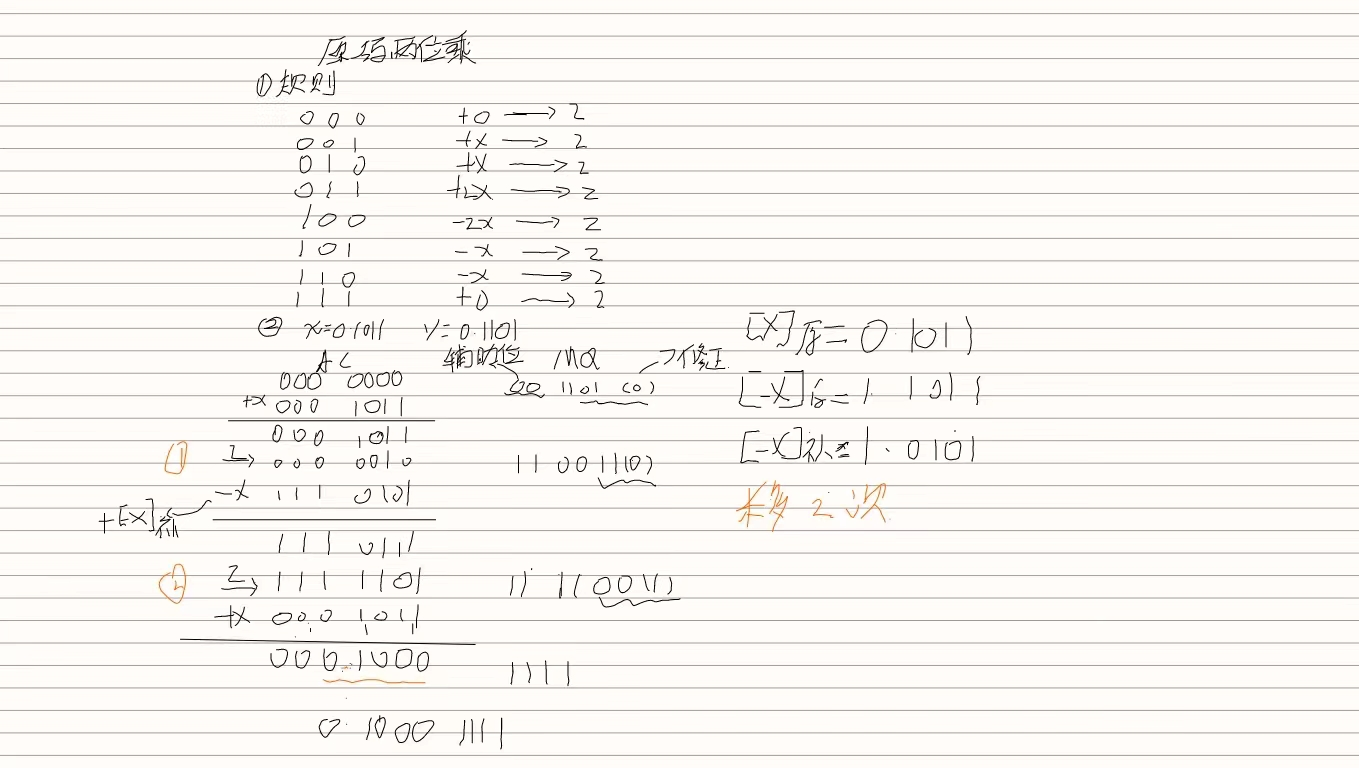 原码两位乘
①规则
0 0 0 +0 → 2
0 0 1 +x → 2
0 1 0 +x → 2
0 1 1 +2x → 2
1 0 0 -2x → 2
1 0 1 -x → 2
1 1 0 -x → 2
1 1 1 +0 → 2
② x=0.1011 y=0.1101
AC 辅助位 MQ
000 0000 00 1101 (0)
+x 000 1011
000 1011
① 2→ 000 0010 11 0011(0)
-x 111 0101
+[-X]补
111 0111
② 2→ 111 1101 11 110011)
+x 000 1011
000.1000 1111
0.1000 1111
[X]原=0.1011
[-X]原=1.1011
[-X]补=1.0101
移2次